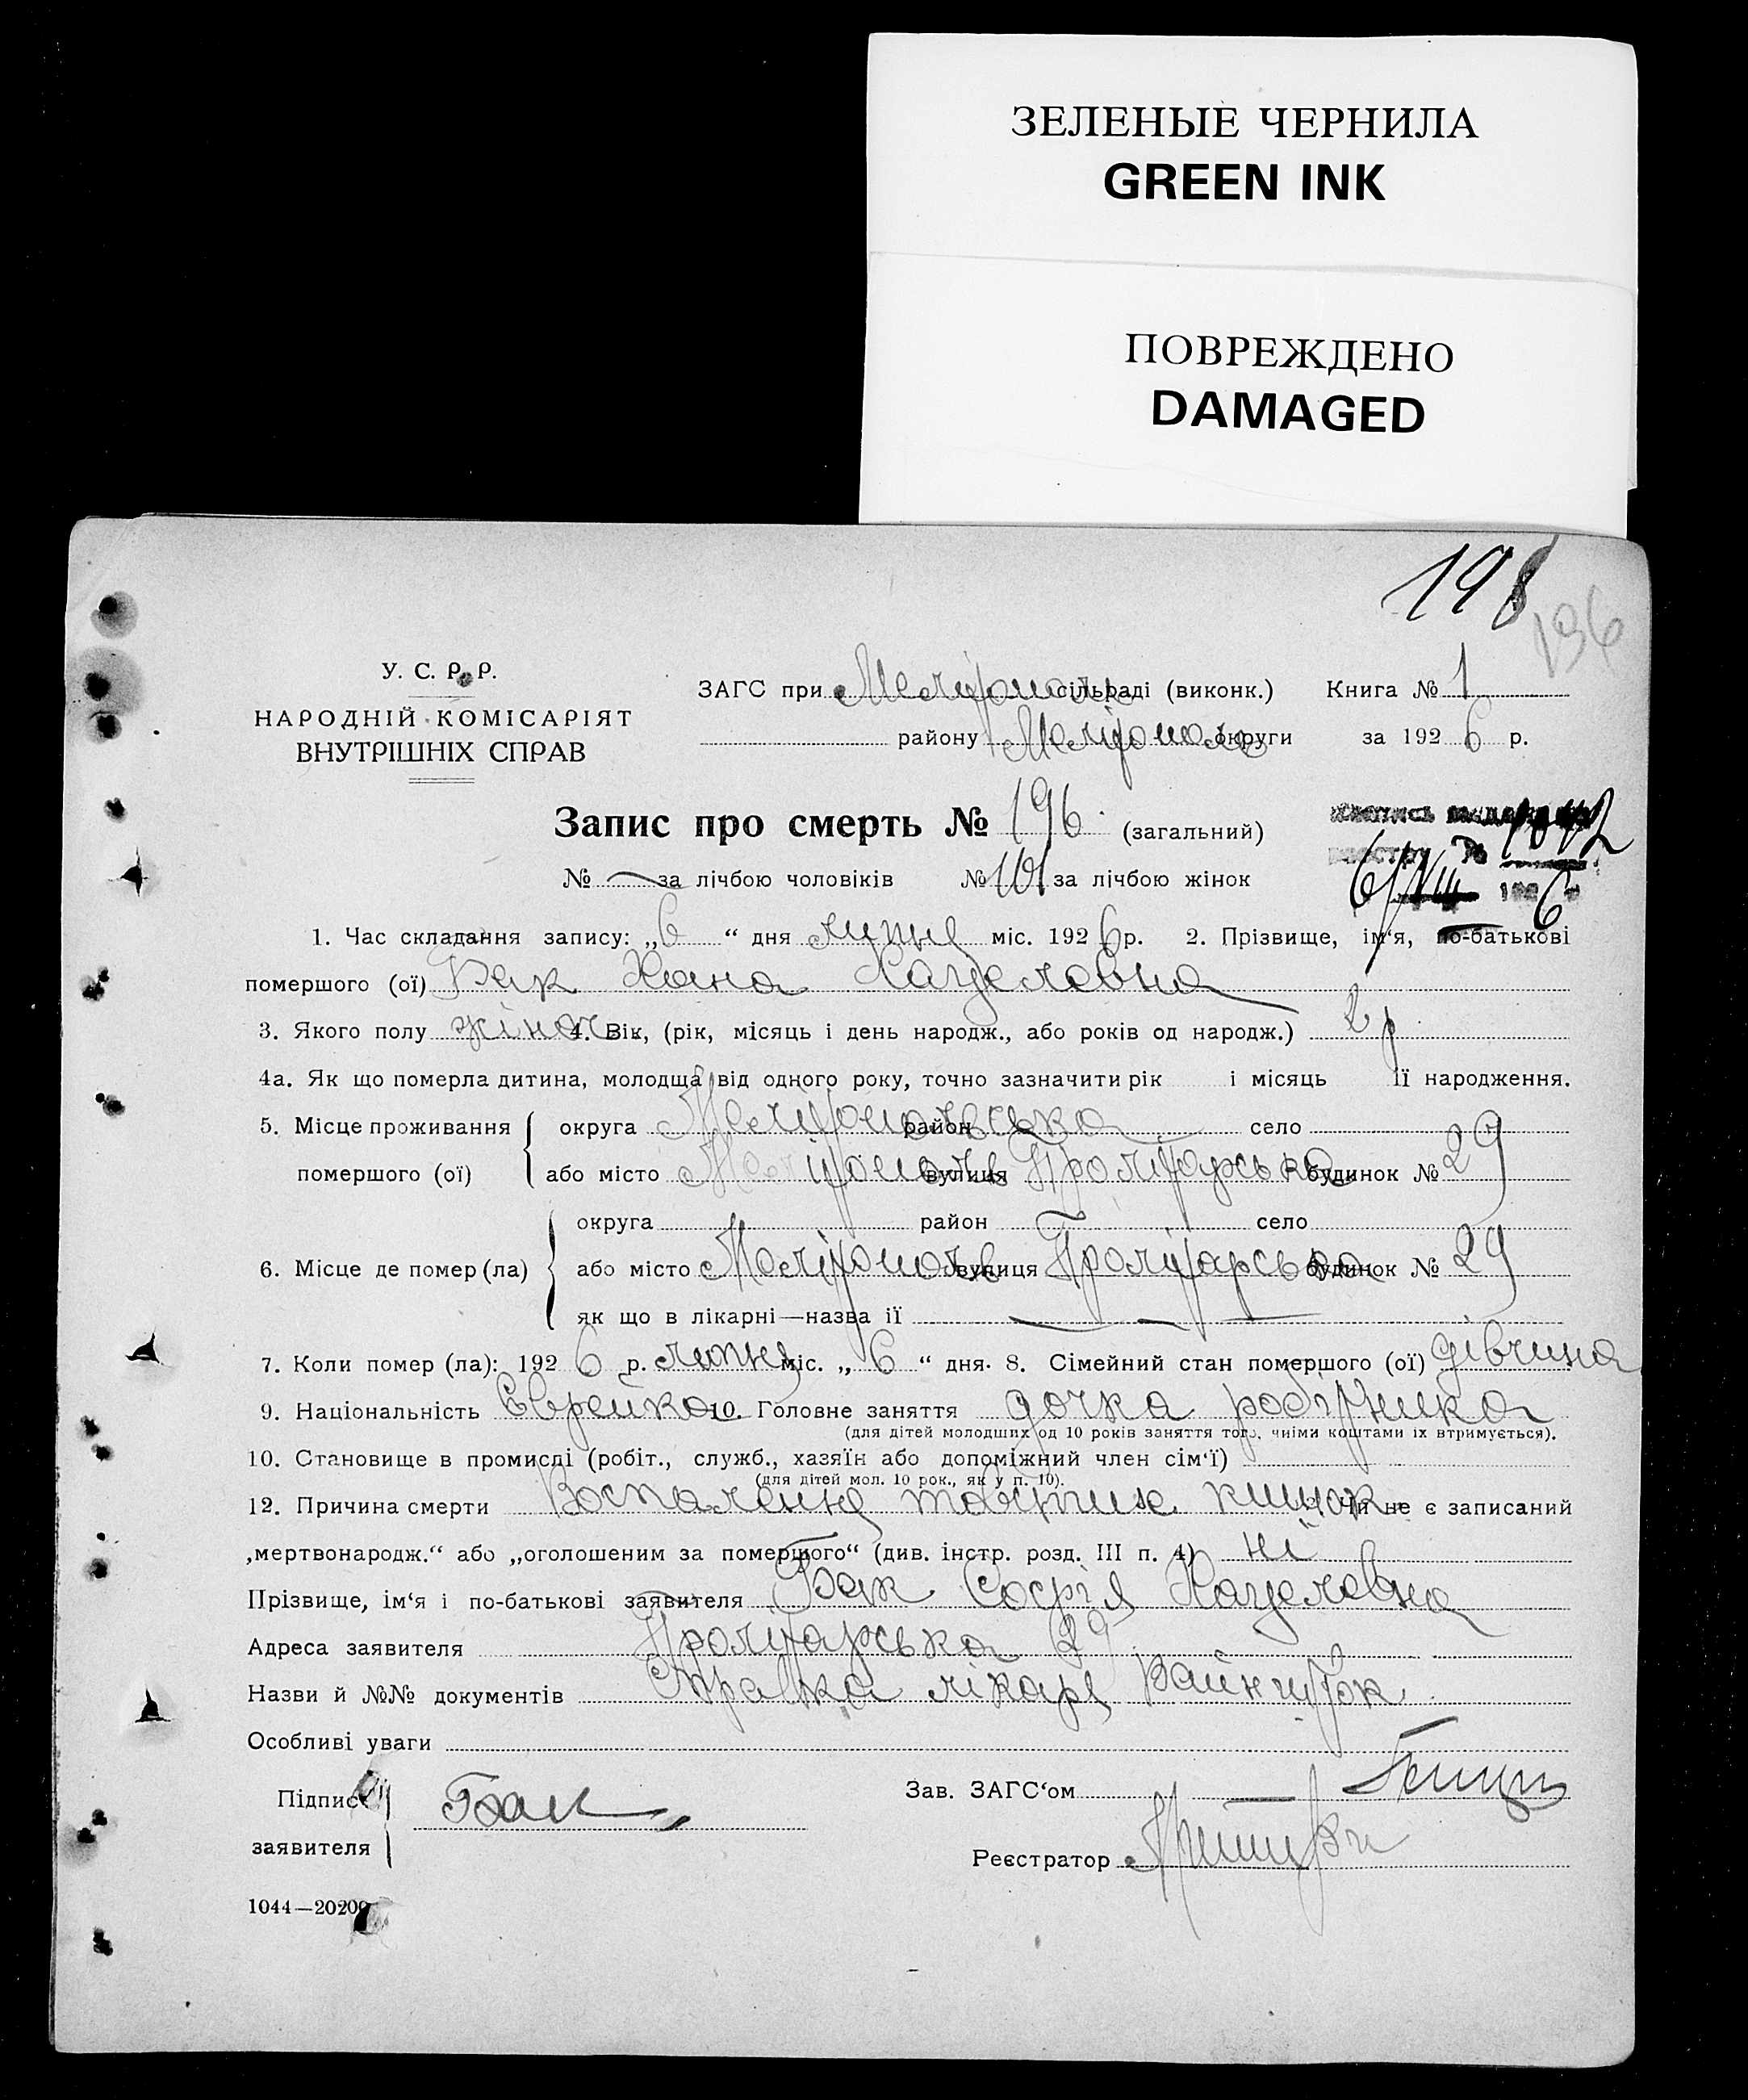 ЗЕЛЕНЫЕ ЧЕРНИЛА
GREEN INK
ПОВРЕЖДЕНО
DAMAGED
198
196
У. С. Р. Р.
НАРОДНІЙ КОМІСАРІЯТ
ВНУТРІШНІХ СПРАВ
ЗАГС при Мелітополь сільраді (виконк.) Книга № 1
району Мелітополь округи за 1926 р.
Запис про смерть № 196. (загальний)
№ — за лічбою чоловіків № 101 за лічбою жінок
6/VIII 1926
1. Час складання запису: „6“ дня липня міс. 1926 р. 2. Прізвище, ім‘я, по-батькові
помершого (ої) Бак Хана Кацелевна
3. Якого полу жіноч. 4. Вік, (рік, місяць і день народж., або років од народж.) 2 р
4а. Як що померла дитина, молодща від одного року, точно зазначити рік і місяць її народження.
5. Місце проживання округа Мелітопольська район село
помершого (ої) або місто Мелітополь вулиця Пролітарська будинок № 29
округа район село
6. Місце де помер (ла) або місто Мелітополь вулиця Пролітарська будинок № 29
як що в лікарні—назва ії —
7. Коли помер (ла): 1926 р. липня міс. „6“ дня. 8. Сімейний стан помершого (ої) дівчина
9. Національність Єврейка 10. Головне заняття дочка робітника
(для дітей молодших од 10 років заняття того, чиїми коштами їх втримується).
10. Становище в промислі (робіт., служб., хазяїн або допоміжний член сім‘ї)
(для дітей мол. 10 рок., як у п. 10).
12. Причина смерти Воспалення кишок Чи не є записаний
„мертвонародж.“ або „оголошеним за померщого“ (див. інстр. розд. III п. 4) ні
Прізвище, ім‘я і по-батькові заявителя Бак Софія Кацелевна
Адреса заявителя Пролітарська 29
Назви й №№ документів Справка лікаря
Особливі уваги
Підпис Бак Зав. ЗАГС‘ом
заявителя
Реєстратор
1044—20200